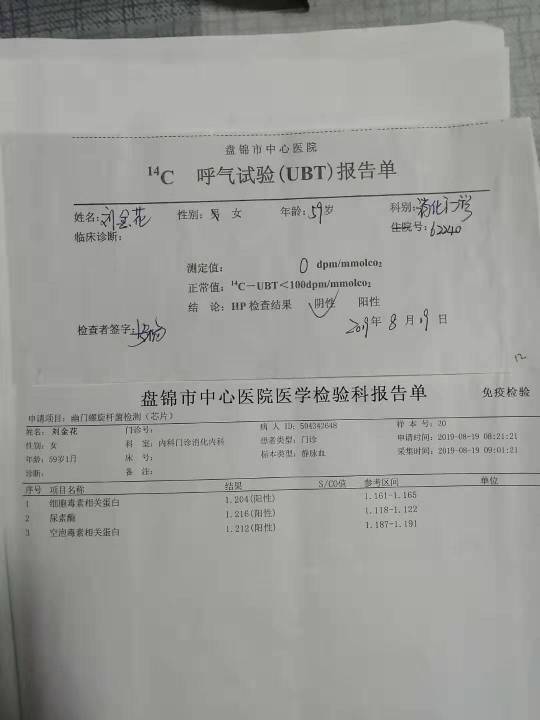 盘锦市中心医院
¹⁴C 呼气试验(UBT)报告单
姓名:刘金花 性别:男 女 年龄:59岁 科别:消化门诊
临床诊断: 住院号:62240
测定值: 0 dpm/mmolco₂
正常值:¹⁴C-UBT<100dpm/mmolco₂
结 论:HP检查结果 阴性 阳性
检查者签字:
2019年 8月19日
12
盘锦市中心医院医学检验科报告单 免疫检验
申请项目:幽门螺旋杆菌检测(芯片)
姓名:刘金花 门诊号: 病人ID:504342648 样本号:20
性别:女 科 室:内科门诊消化内科 患者类型:门诊 申请时间:2019-08-19 08:21:21
年龄:59岁1月 床 号: 标本类型:静脉血 采集时间:2019-08-19 09:01:21
诊断: 备 注:
序号 项目名称 结果 S/CO值 参考区间 单位
1 细胞毒素相关蛋白 1.204(阳性) 1.161-1.165
2 尿素酶 1.216(阳性) 1.118-1.122
3 空泡毒素相关蛋白 1.212(阳性) 1.187-1.191